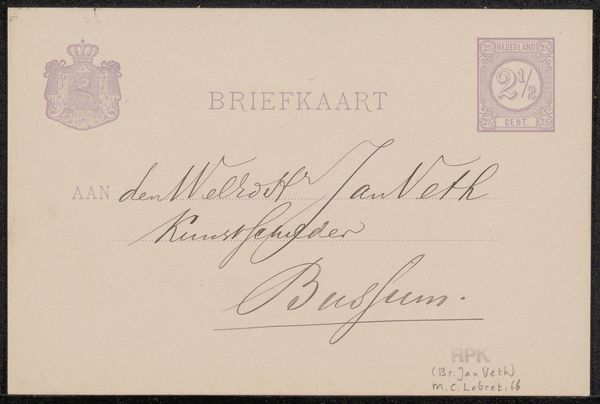 BRIEFKAART
NEDERLAND
2½
CENT.
AAN den WelEdHr Jan Veth
Kunstschilder
Bussum.
RPK
(Br. Jan Veth)
M.C. Lebret: 66